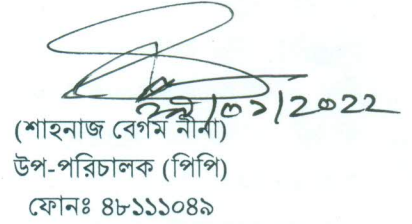 /০১/২০২২
(শাহনাজ বেগম নীনা)
উপ-পরিচালক (পিপি)
ফোনঃ ৪৮১১১০৪৯